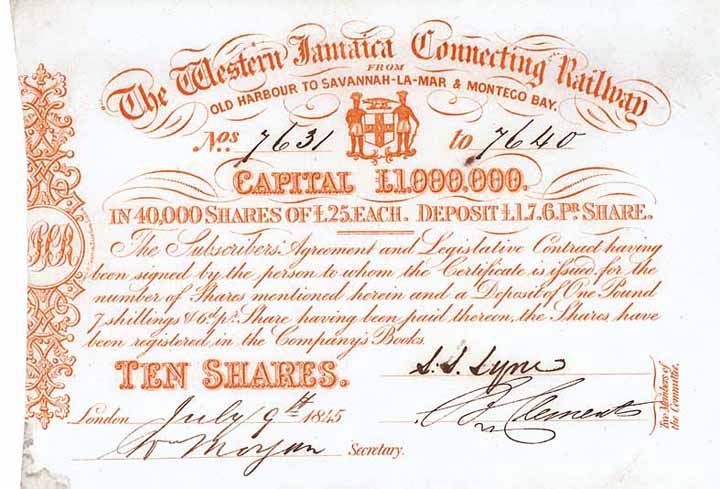 The Western Jamaica Connecting Railway
FROM
OLD HARBOUR TO SAVANNAH-LA-MAR & MONTEGO BAY.
Nos. 7631 to 7640
CAPITAL £1,000,000.
IN 40,000 SHARES OF £25 EACH. DEPOSIT £1.7.6. PR. SHARE.
The Subscribers' Agreement and Legislative Contract having
been signed by the person to whom the Certificate is issued for the
number of Shares mentioned herein and a Deposit of One Pound
7 shillings & 6d. pr. Share having been paid thereon, the Shares have
been registered in the Company's Books.
TEN SHARES.
London July 9th 1845
Wm Morgan Secretary.
S. S. Lyne
Clements
Two Members of
the Committee.